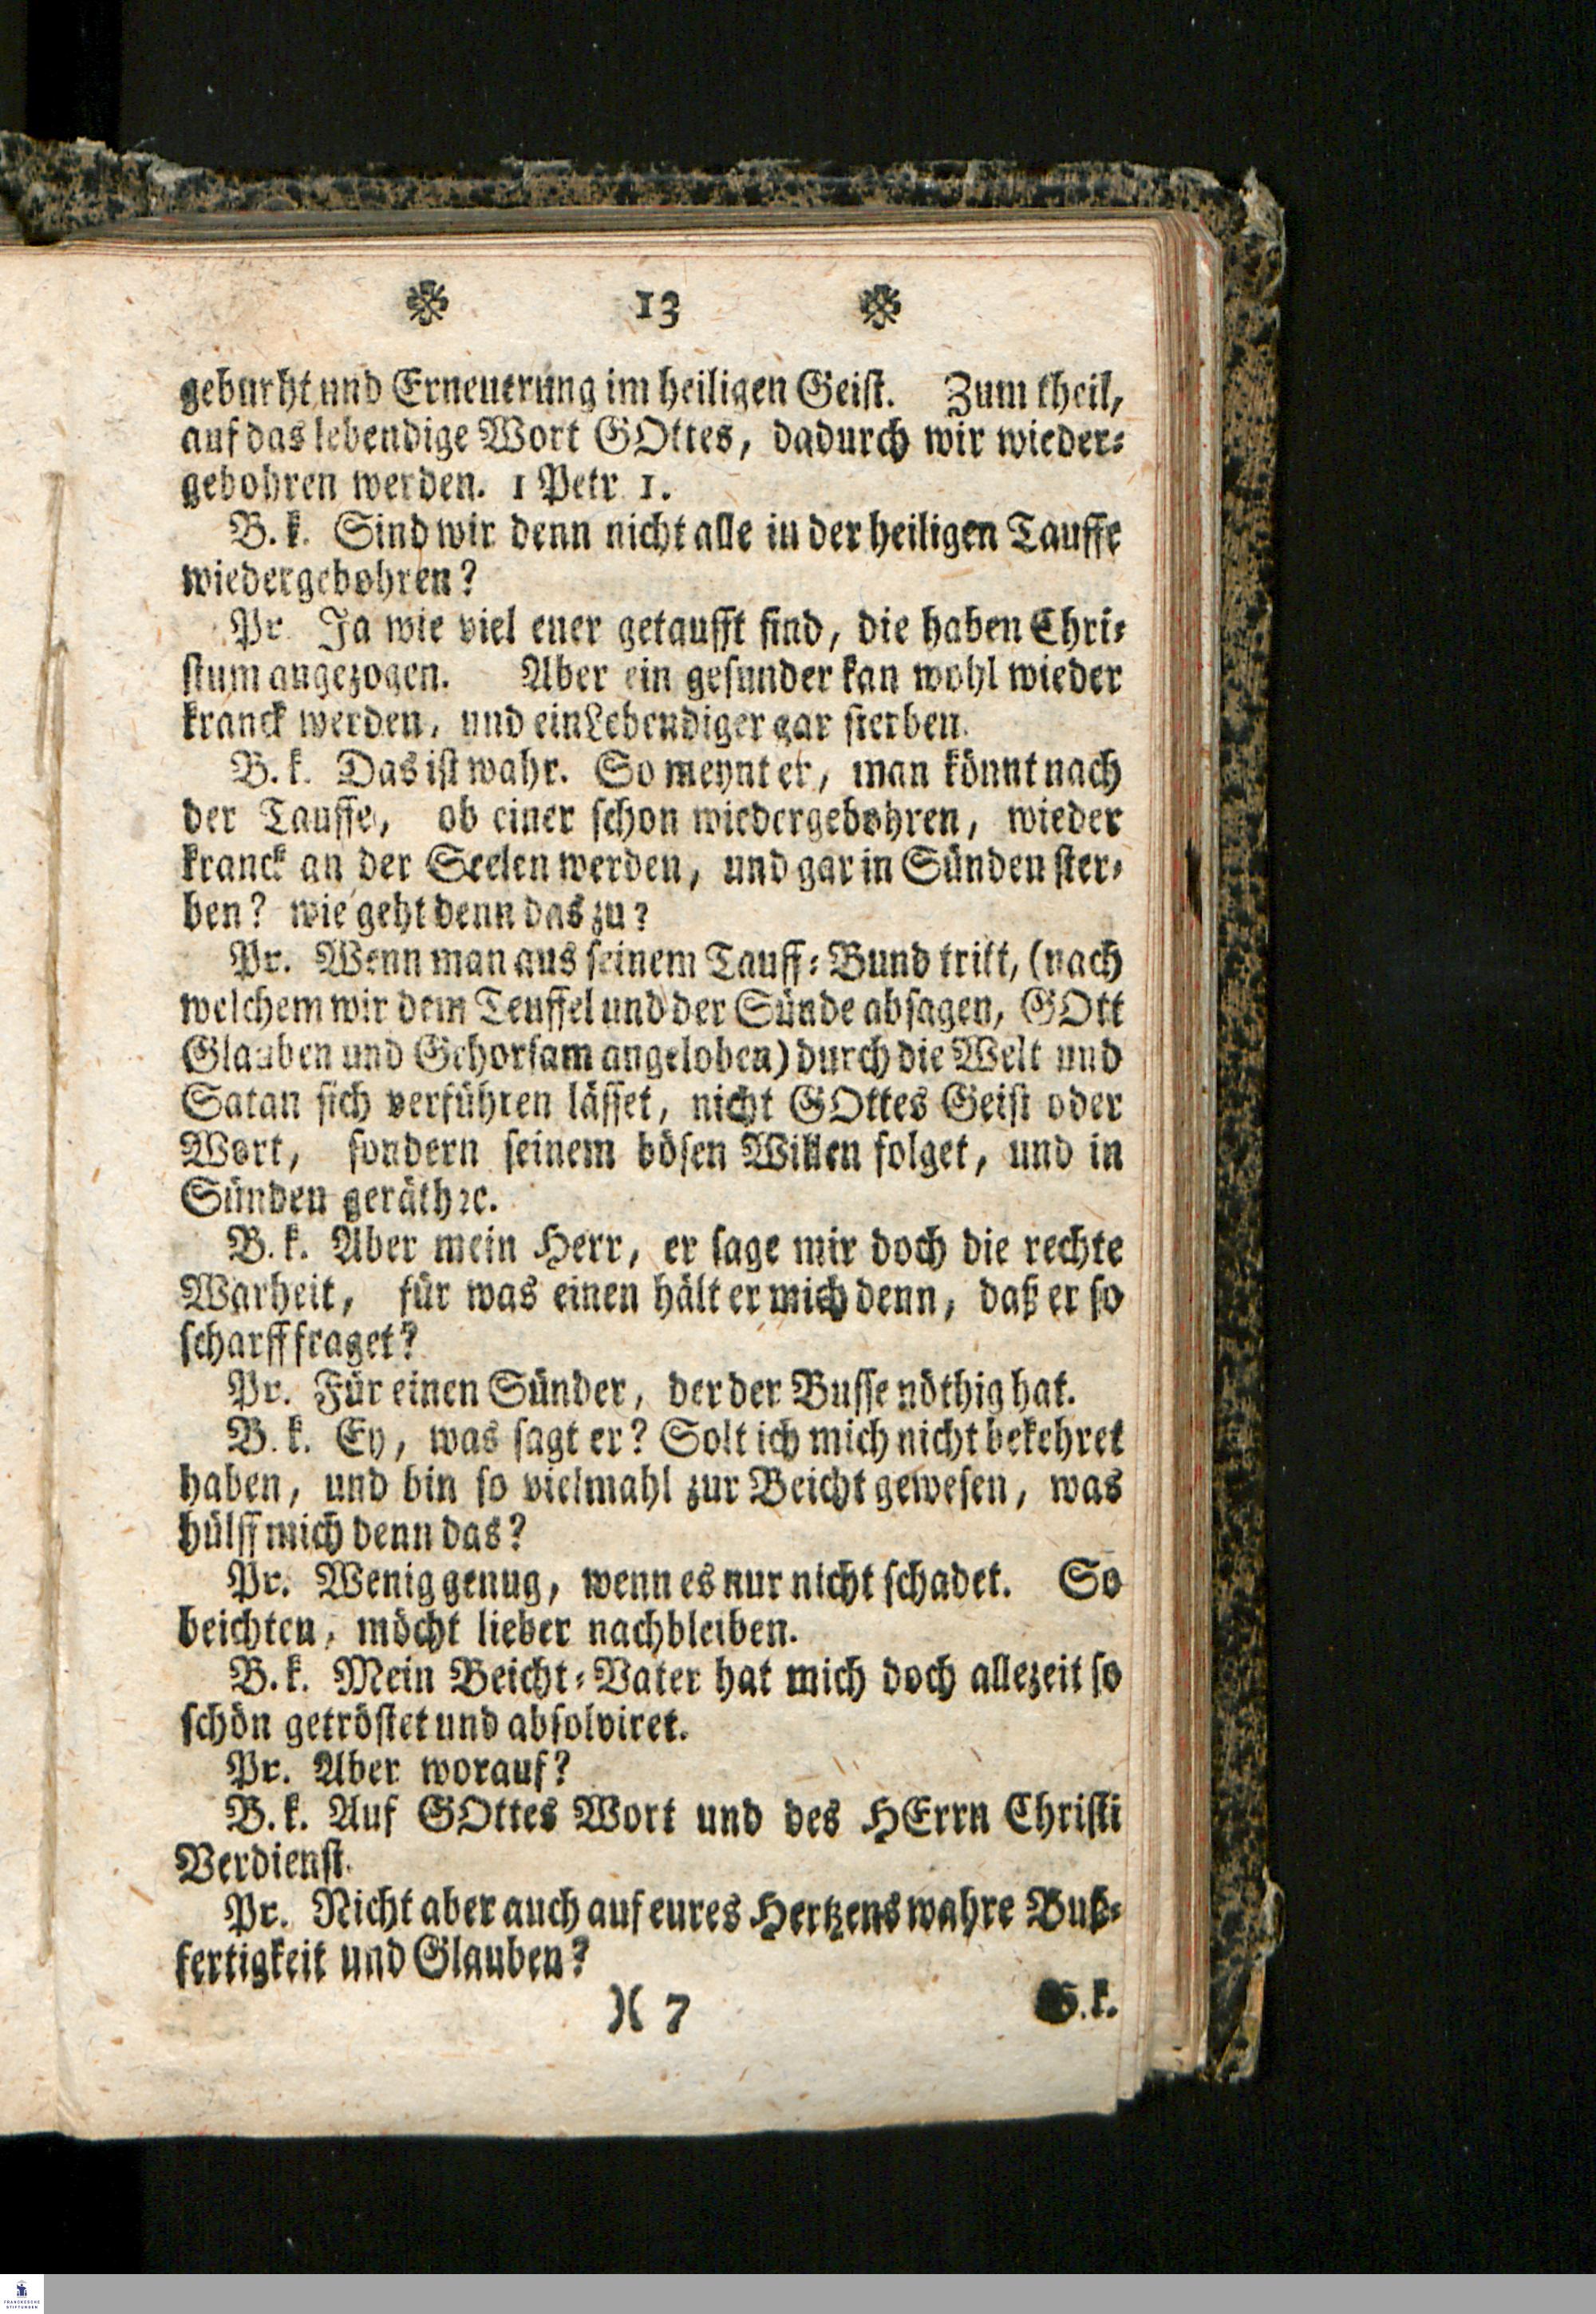 13
geburht und Erneuerung im heiligen Geist. Zum theil,
auf das lebendige Wort GOttes, dadurch wir wieder-
gebohren werden. 1 Petr 1.
B. k. Sind wir denn nicht alle in der heiligen Tauffe
wiedergebohren?
Pr. Ja wie viel euer getaufft sind, die haben Chri-
stum angezogen. Aber ein gesunder kan wohl wieder
kranck werden, und ein Lebendiger gar sterben.
B. k. Das ist wahr. So meynt er, man könnt nach
der Tauffe, ob einer schon wiedergebohren, wieder
kranck an der Seelen werden, und gar in Sünden ster-
ben? wie geht denn das zu?
Pr. Wenn man aus seinem Tauff-Bund tritt, (nach
welchem wir dem Teuffel und der Sünde absagen, GOtt
Glauben und Gehorsam angeloben) durch die Welt und
Satan sich verführen lässet, nicht GOttes Geist oder
Wort, sondern seinem bösen Willen folget, und in
Sünden geräth ꝛc.
B. k. Aber mein Herr, er sage mir doch die rechte
Warheit, für was einen hält er mich denn, daß er so
scharff fraget?
Pr. Für einen Sünder, der der Busse nöthig hat.
B. k. Ey, was sagt er? Solt ich mich nicht bekehret
haben, und bin so vielmahl zur Beicht gewesen, was
hülff mich denn das?
Pr. Wenig genug, wenn es nur nicht schadet. So
beichten, möcht lieber nachbleiben.
B. k. Mein Beicht-Vater hat mich doch allezeit so
schön getröstet und absolviret.
Pr. Aber worauf?
B. k. Auf GOttes Wort und des HErrn Christi
Verdienst.
Pr. Nicht aber auch auf eures Hertzens wahre Buß-
fertigkeit und Glauben?
)( 7 B. k.
FRANCKESCHE
STIFTUNGEN